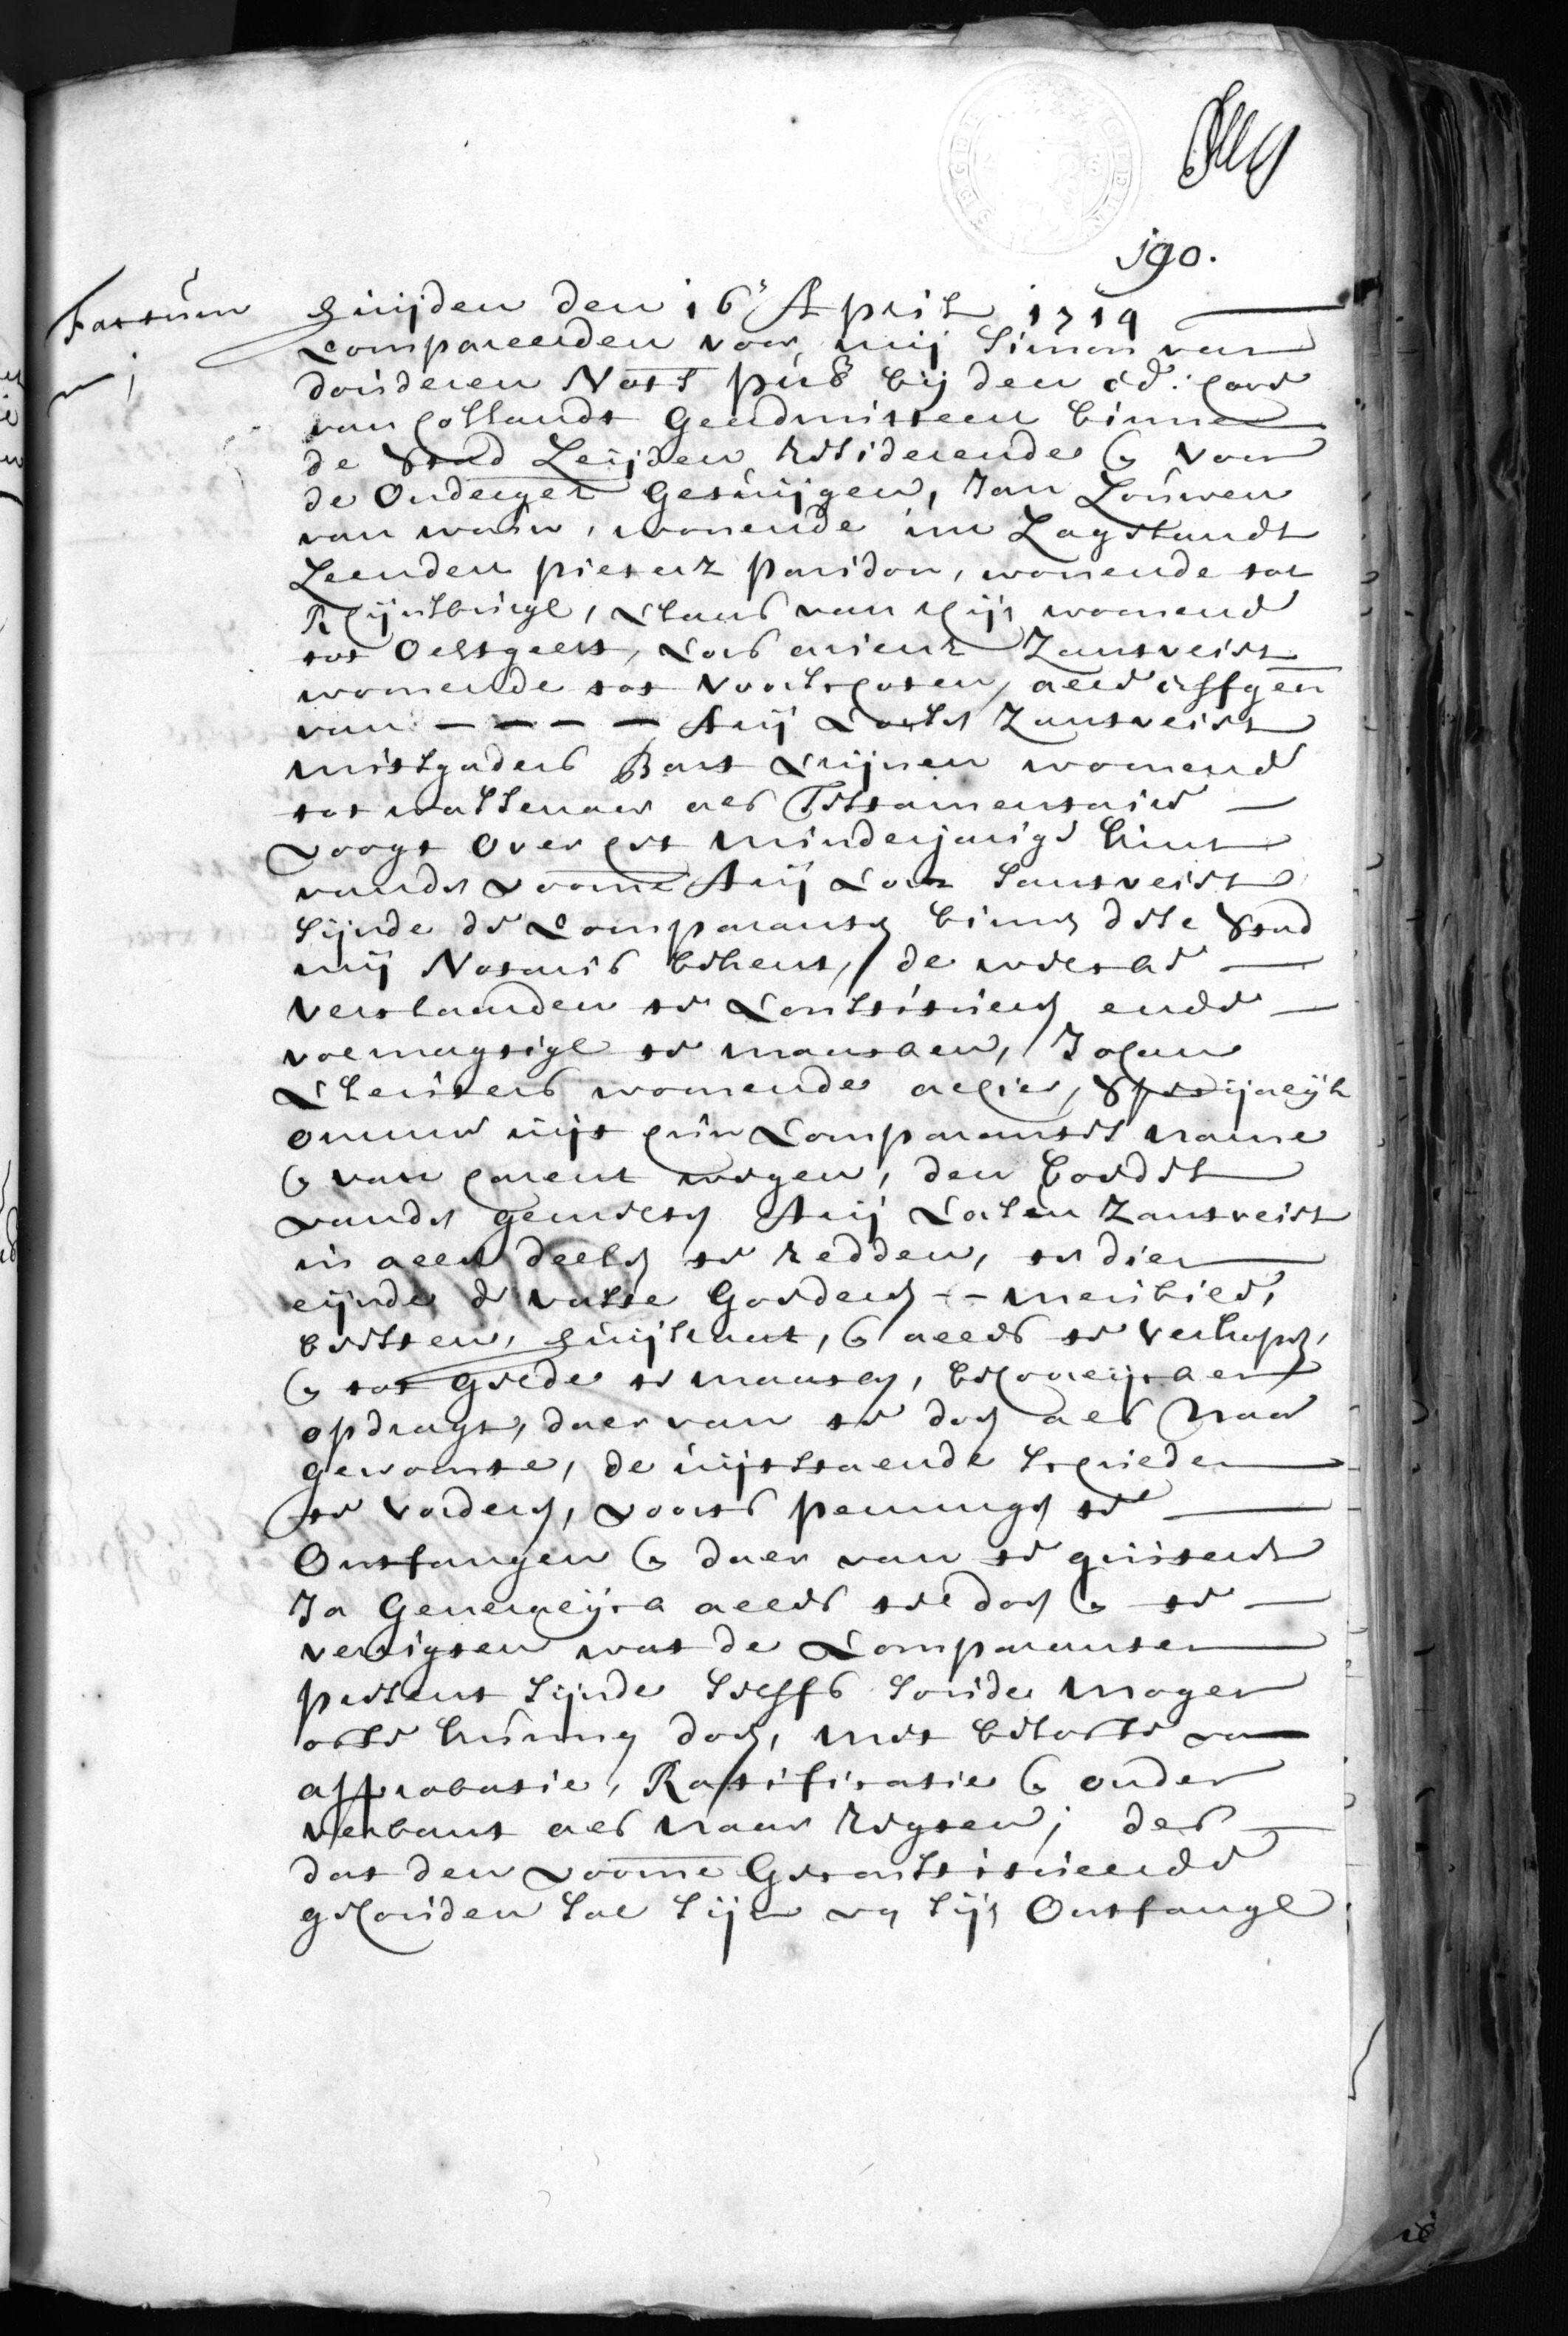 190.
Factum
Huijden den 16e April 1714
Compareerden voor mij Simon van
Douderen Nots pub bij den Ed: hove
van hollandt Geadmitteert binnen
de Stad Leijden residerende & voor
de Onderges Getuijgen, Jan Louwen
van wonende inn Laghlandt
Leendert pieterz paridon, wonende tot
Rhijnsburgh, Claas van rhijn wonend
tot Oestgeest, Cors ariensz Zantvelst
wonende tot Voorschoten, als erffgen
van - - - - Arij Corsen Zantvelst
mitsgaders Bart Crijnen wonend
tot wassenaer als Testamentaire
Voogt over het minderjarige kint
vande voorne Arij Corsz Santvelst
Sijnde de Comparanten binnen dese Stad
mij Notaris bekent, de welcke
verclaerden te Constitueren ende
volmagtigh te maecken, Johan
Cleuters wonende alhier, Specijaelijk
omme uijt hun Comparanten name
& van harent wegen, den boedel
vande gemelten Arij Corsen Zantvelst
in allen deelen te redden, ten dien
eijnde de vaste Goederen - - meubiles,
beesten, huijsraet, & alles te verkopen,
& tot gelde te maecken, behoorlijck en
opdragt, daer van te doen als naer
gewoonte, de uijtstaende schulden
te vorderen, voorts penningen te
Ontfangen & daer van te quiteren
Ja Generalijck alles te doen & te
verrigten wat de Comparanten
present sijnde selffs soude mogen
ofte kunnen doen, met belofte van
approbatie, Ratificatie & onder
verbant als naar Regten; des
dat den voorne Geconstitueerde
gehouden sal sijn van sijn Ontfangh